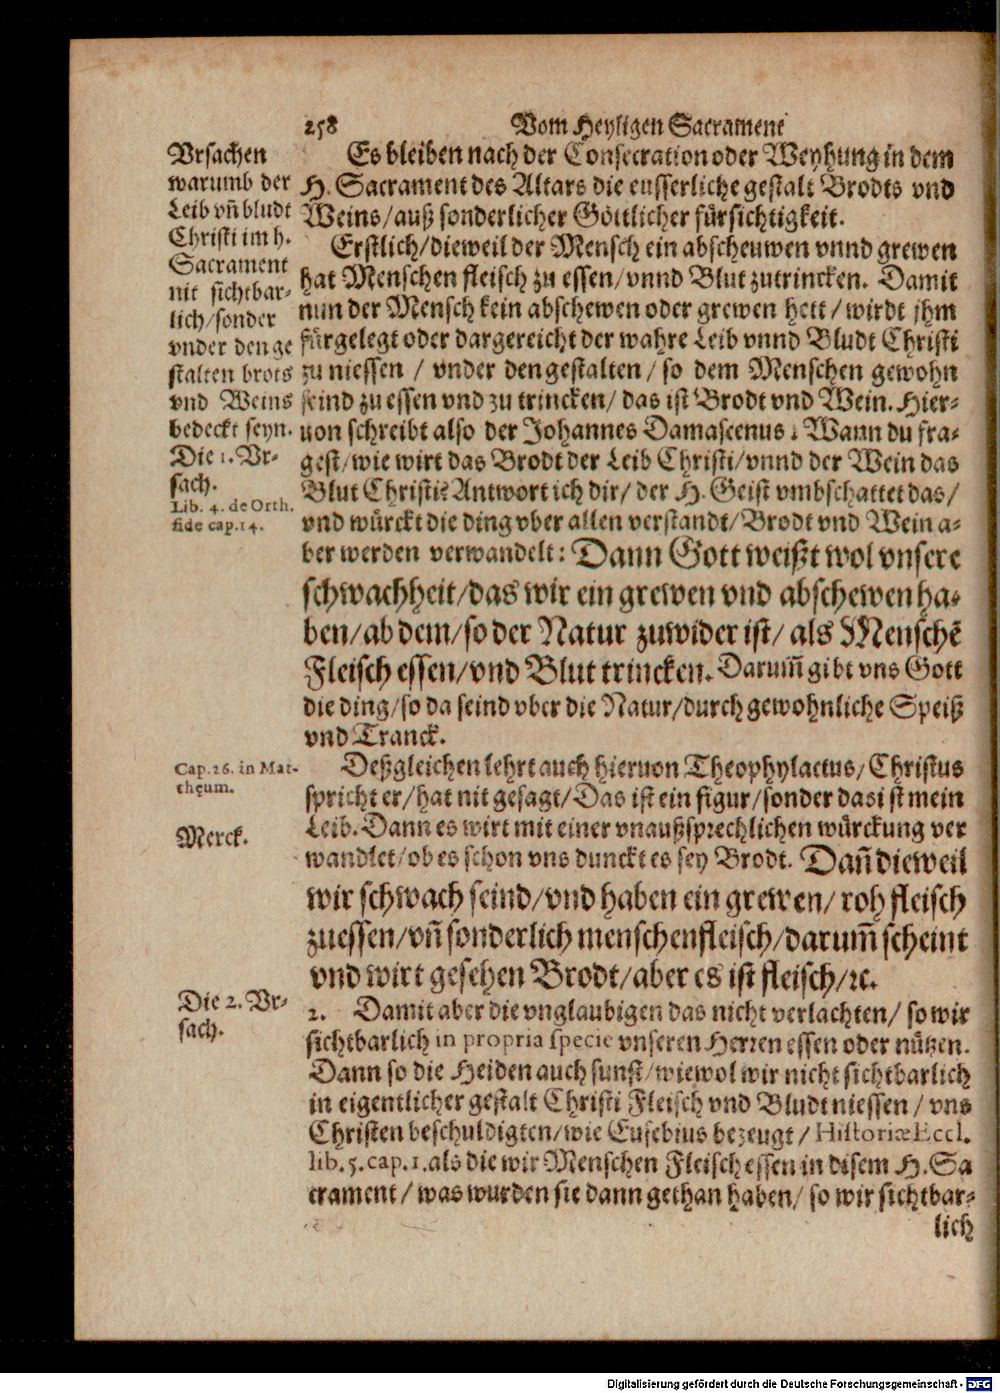 258 Vom Heyligen Sacrament
Vrsachen
warumb der
Leib vñ bludt
Christi im h.
Sacrament
nit sichtbar-
lich/sonder
vnder den ge
stalten brots
vnd Weins
bedeckt seyn.
Die 1. Vr-
sach.
Lib. 4. de Orth.
fide cap.14.
Es bleiben nach der Consecration oder Weyhung in dem
H. Sacrament des Altars die eusserliche gestalt Brodts vnd
Weins/auß sonderlicher Göttlicher fürsichtigkeit.
Erstlich/dieweil der Mensch ein abscheuwen vnnd grewen
hat Menschen fleisch zu essen/vnnd Blut zutrincken. Damit
nun der Mensch kein abschewen oder grewen hett/wirdt jhm
fürgelegt oder dargereicht der wahre Leib vnnd Bludt Christi
zu niessen / vnder den gestalten/so dem Menschen gewohn
seind zu essen vnd zu trincken/das ist Brodt vnd Wein. Hier-
uon schreibt also der Johannes Damascenus: Wann du fra-
gest/wie wirt das Brodt der Leib Christi/vnnd der Wein das
Blut Christi? Antwort ich dir/der H. Geist vmbschattet das/
vnd würckt die ding vber allen verstandt/Brodt vnd Wein a-
ber werden verwandelt: Dann Gott weißt wol vnsere
schwachheit/das wir ein grewen vnd abschewen ha-
ben/ab dem/so der Natur zuwider ist/als Menschẽ
Fleisch essen/vnd Blut trincken. Darum̃ gibt vns Gott
die ding/so da seind vber die Natur/durch gewohnliche Speiß
vnd Tranck.
Cap.26. in Mat-
thęum.
Merck.
Deßgleichen lehrt auch hieruon Theophylactus/Christus
spricht er/hat nit gesagt/Das ist ein figur/sonder das ist mein
Leib. Dann es wirt mit einer vnaußsprechlichen würckung ver
wandlet/ob es schon vns dunckt es sey Brodt. Dañ dieweil
wir schwach seind/vnd haben ein grewen/roh fleisch
zuessen/vñ sonderlich menschenfleisch/darum̃ scheint
vnd wirt gesehen Brodt/aber es ist fleisch/ꝛc.
Die 2. Vr-
sach.
2. Damit aber die vnglaubigen das nicht verlachten/so wir
sichtbarlich in propria specie vnseren Herren essen oder nützen.
Dann so die Heiden auch sunst/wiewol wir nicht sichtbarlich
in eigentlicher gestalt Christi Fleisch vnd Bludt niessen/vns
Christen beschuldigten/wie Eusebius bezeugt/Historiæ Eccl.
lib.5.cap.1.als die wir Menschen Fleisch essen in disem H. Sa
crament/was wurden sie dann gethan haben/so wir sichtbar-
lich
Digitalisierung gefördert durch die Deutsche Forschungsgemeinschaft - DFG